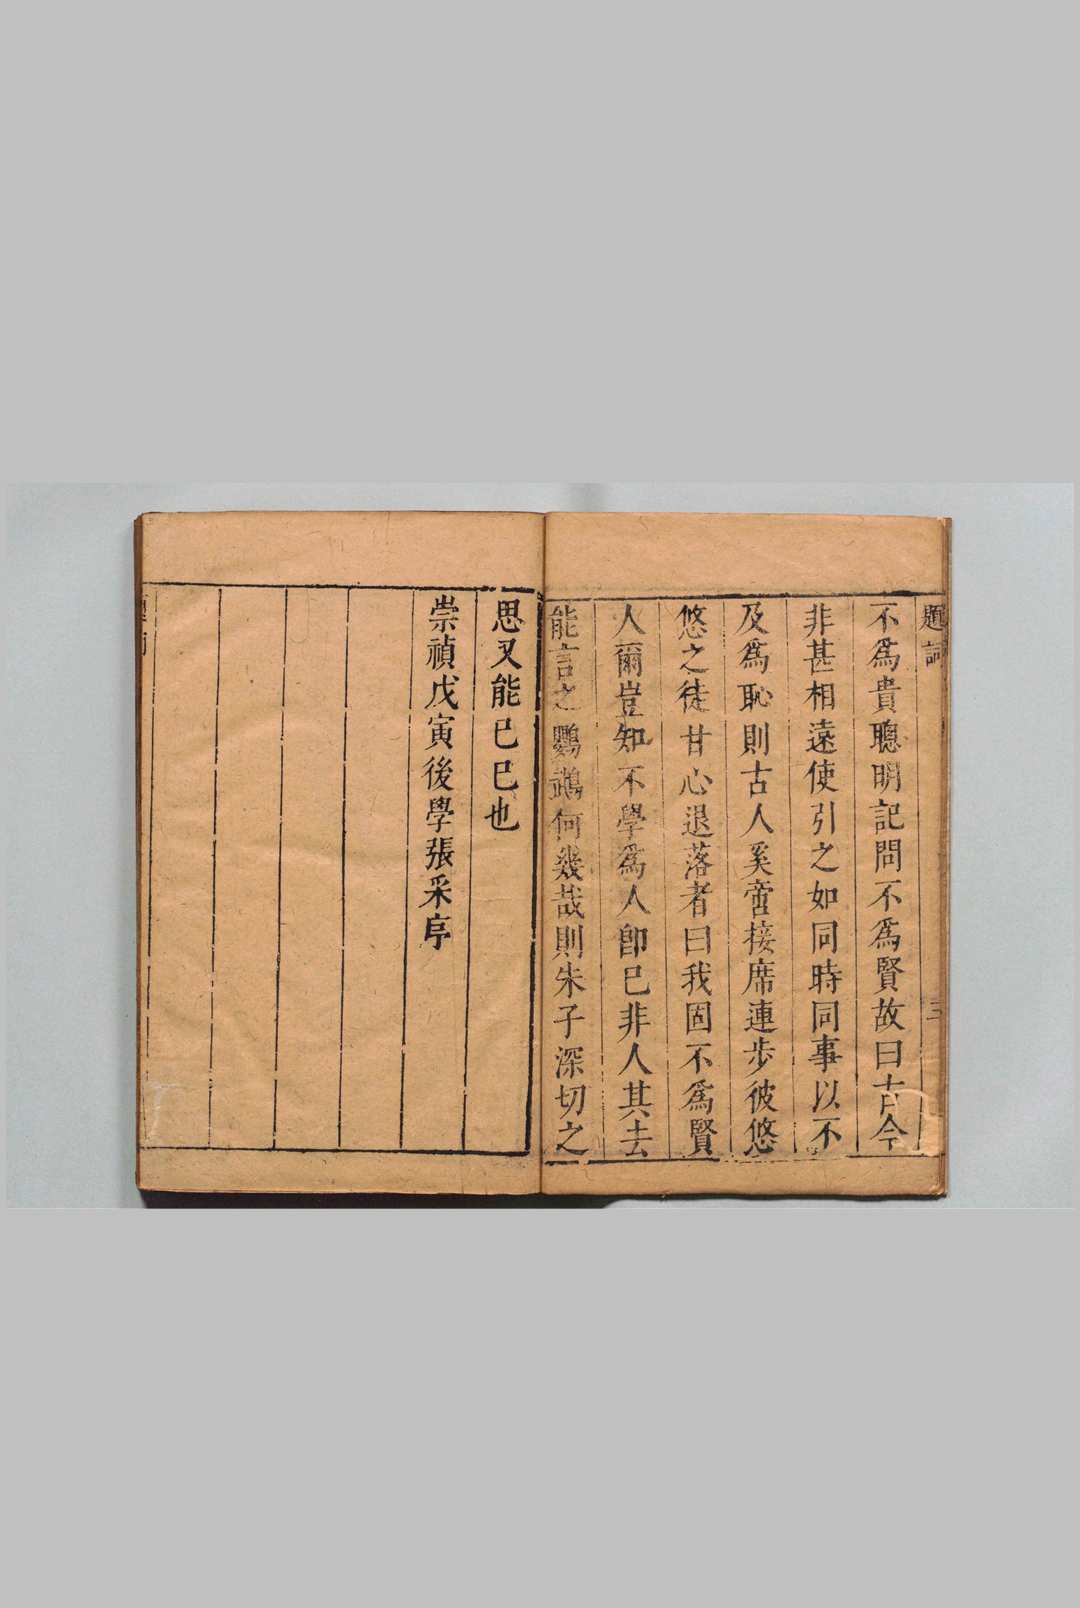 題詞
三
不爲貴聰明記問不爲賢故曰古今
非甚相遠使引之如同時同事以不
及爲恥則古人奚啻接席連步彼悠
悠之徒甘心退落者曰我固不爲賢
人爾豈知不學爲人卽已非人其去
能言之鸚鵡何幾哉則朱子深切之
思又能已已也
崇禎戊寅後學張采序